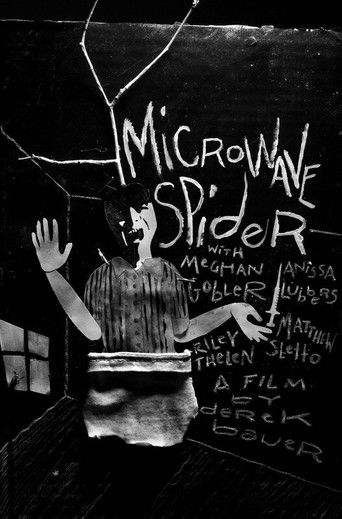 MicroWAVE
SPideR
WITH
MEGHAN GobleR
ANiSSA Lubbers
RiLEY THELEN
MATTHEW Sletto
A FiLM
bY
deRcK
bauer